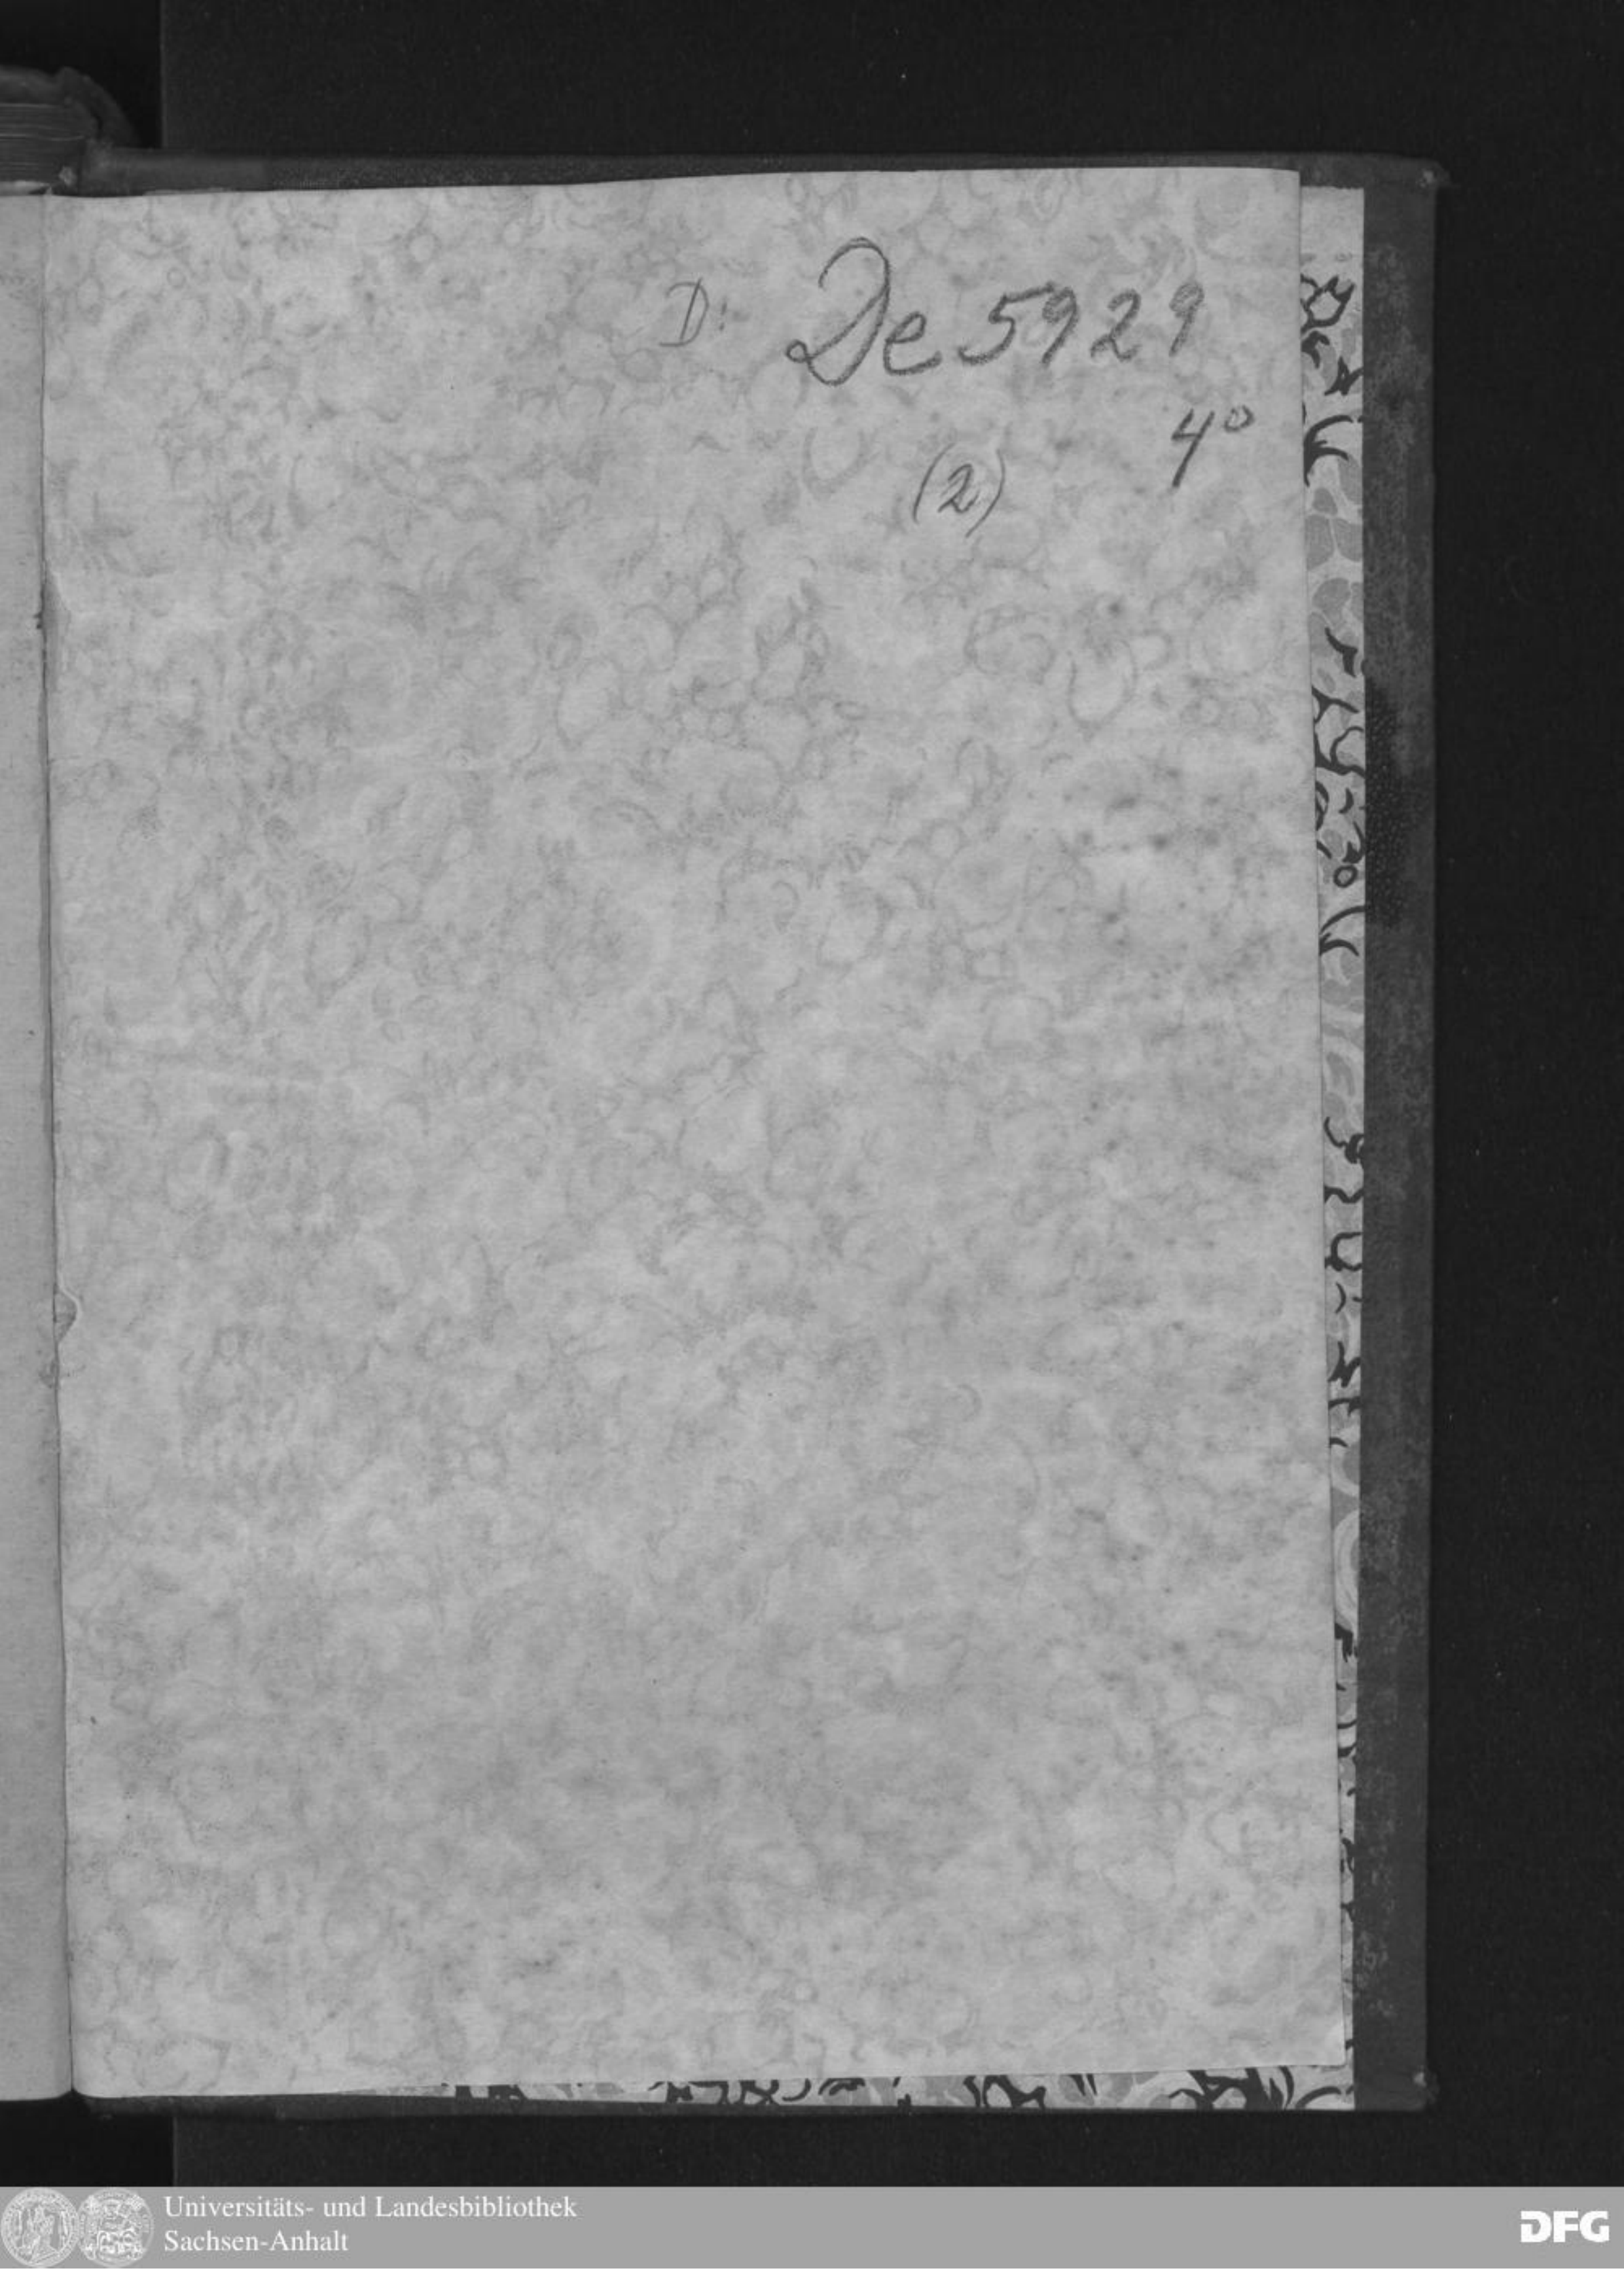 D: De 5929
4°
(2)
Universitäts- und Landesbibliothek
Sachsen-Anhalt
DFG